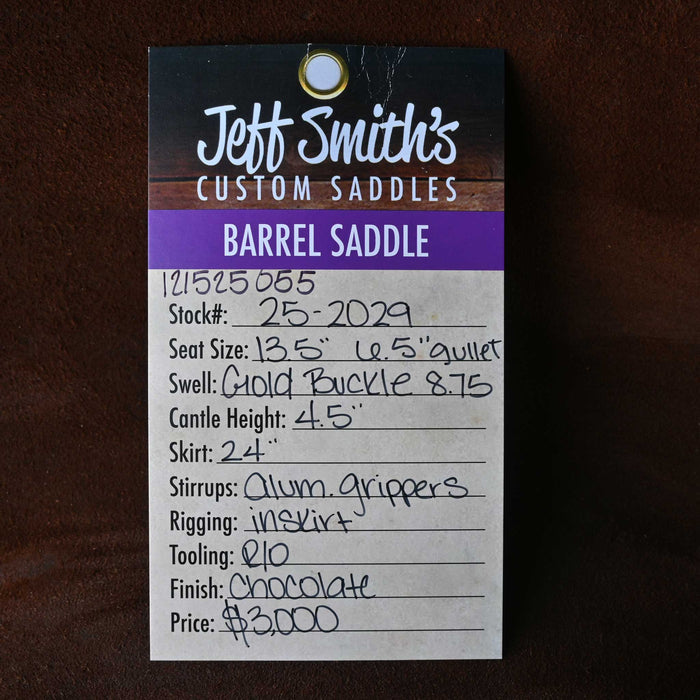 Jeff Smith's
CUSTOM SADDLES
BARREL SADDLE
121525055
Stock#: 25-2029
Seat Size: 13.5" 6.5" gullet
Swell: Gold Buckle 8.75
Cantle Height: 4.5"
Skirt: 24"
Stirrups: alum. grippers
Rigging: inskirt
Tooling: R/O
Finish: Chocolate
Price: $3,000